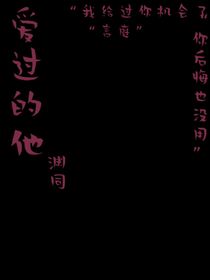 爱过的他
渊同
“我给过你机会了
你后悔也没用”
“言庭”